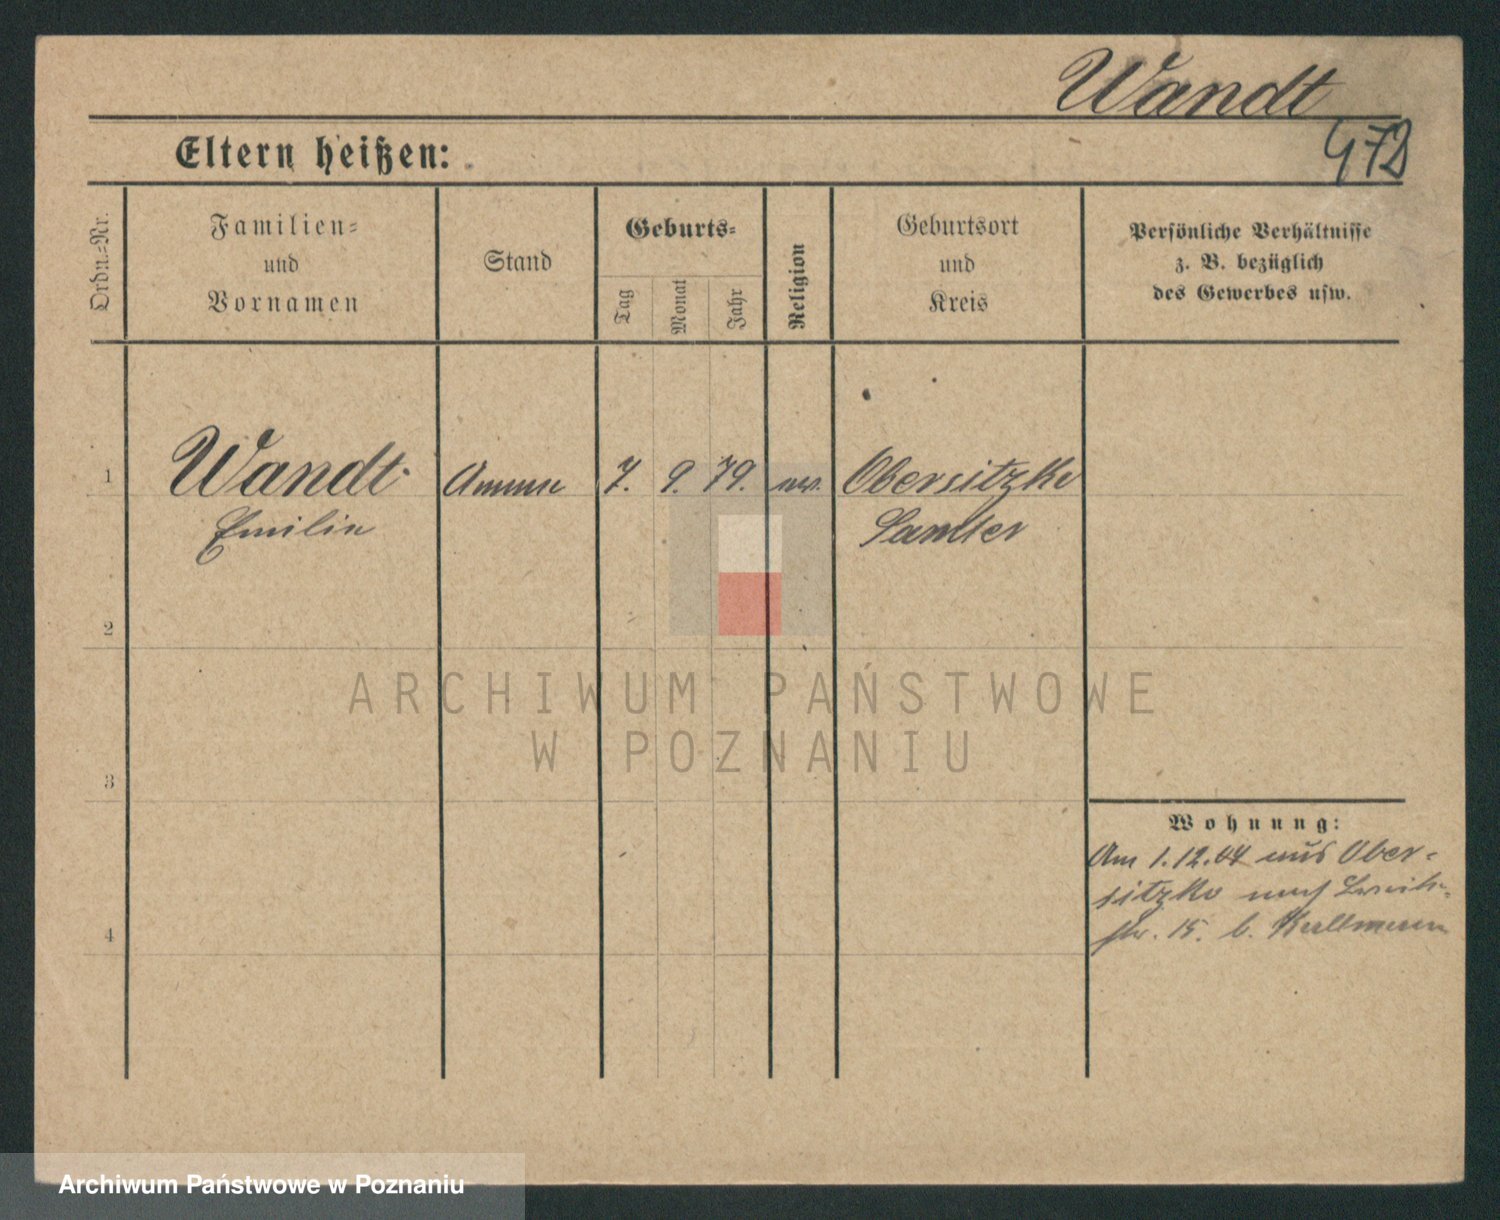 Wandt
472
Eltern heißen:
Ordn.-Nr.
Familien-
und
Vornamen
Stand
Geburts-
Tag
Monat
Jahr
Religion
Geburtsort
und
Kreis
Persönliche Verhältnisse
z. B. bezüglich
des Gewerbes usw.
1
Wandt Amme 7. 9. 79. ev. Obersitzko
Emilie Samter
2
ARCHIWUM PAŃSTWOWE
W POZNANIU
3
Wohnung:
Am 1.12.04 aus Ober-
sitzko nach
str. 15. b.
4
Archiwum Państwowe w Poznaniu